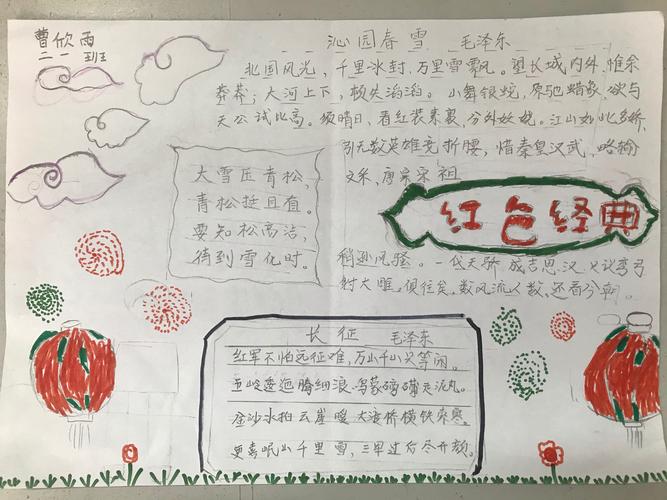 曹欣雨
二一班
沁园春雪 毛泽东
北国风光，千里冰封，万里雪飘。望长城内外，惟余
莽莽；大河上下，顿失滔滔。山舞银蛇，原驰蜡象，欲与
天公试比高。须晴日，看红装素裹，分外妖娆。江山如此多娇，
引无数英雄竞折腰，惜秦皇汉武，略输
文采，唐宗宋祖
大雪压青松，
青松挺且直。
要知松高洁，
待到雪化时。
红色经典
稍逊风骚。一代天骄 成吉思汗，只识弯弓
射大雕。俱往矣，数风流人数，还看今朝。
长征 毛泽东
红军不怕远征难，万山千山只等闲。
五岭逶迤腾细浪，乌蒙磅礴走泥丸。
金沙水拍云崖暖，大渡桥横铁索寒。
更喜岷山千里雪，三军过后尽开颜。